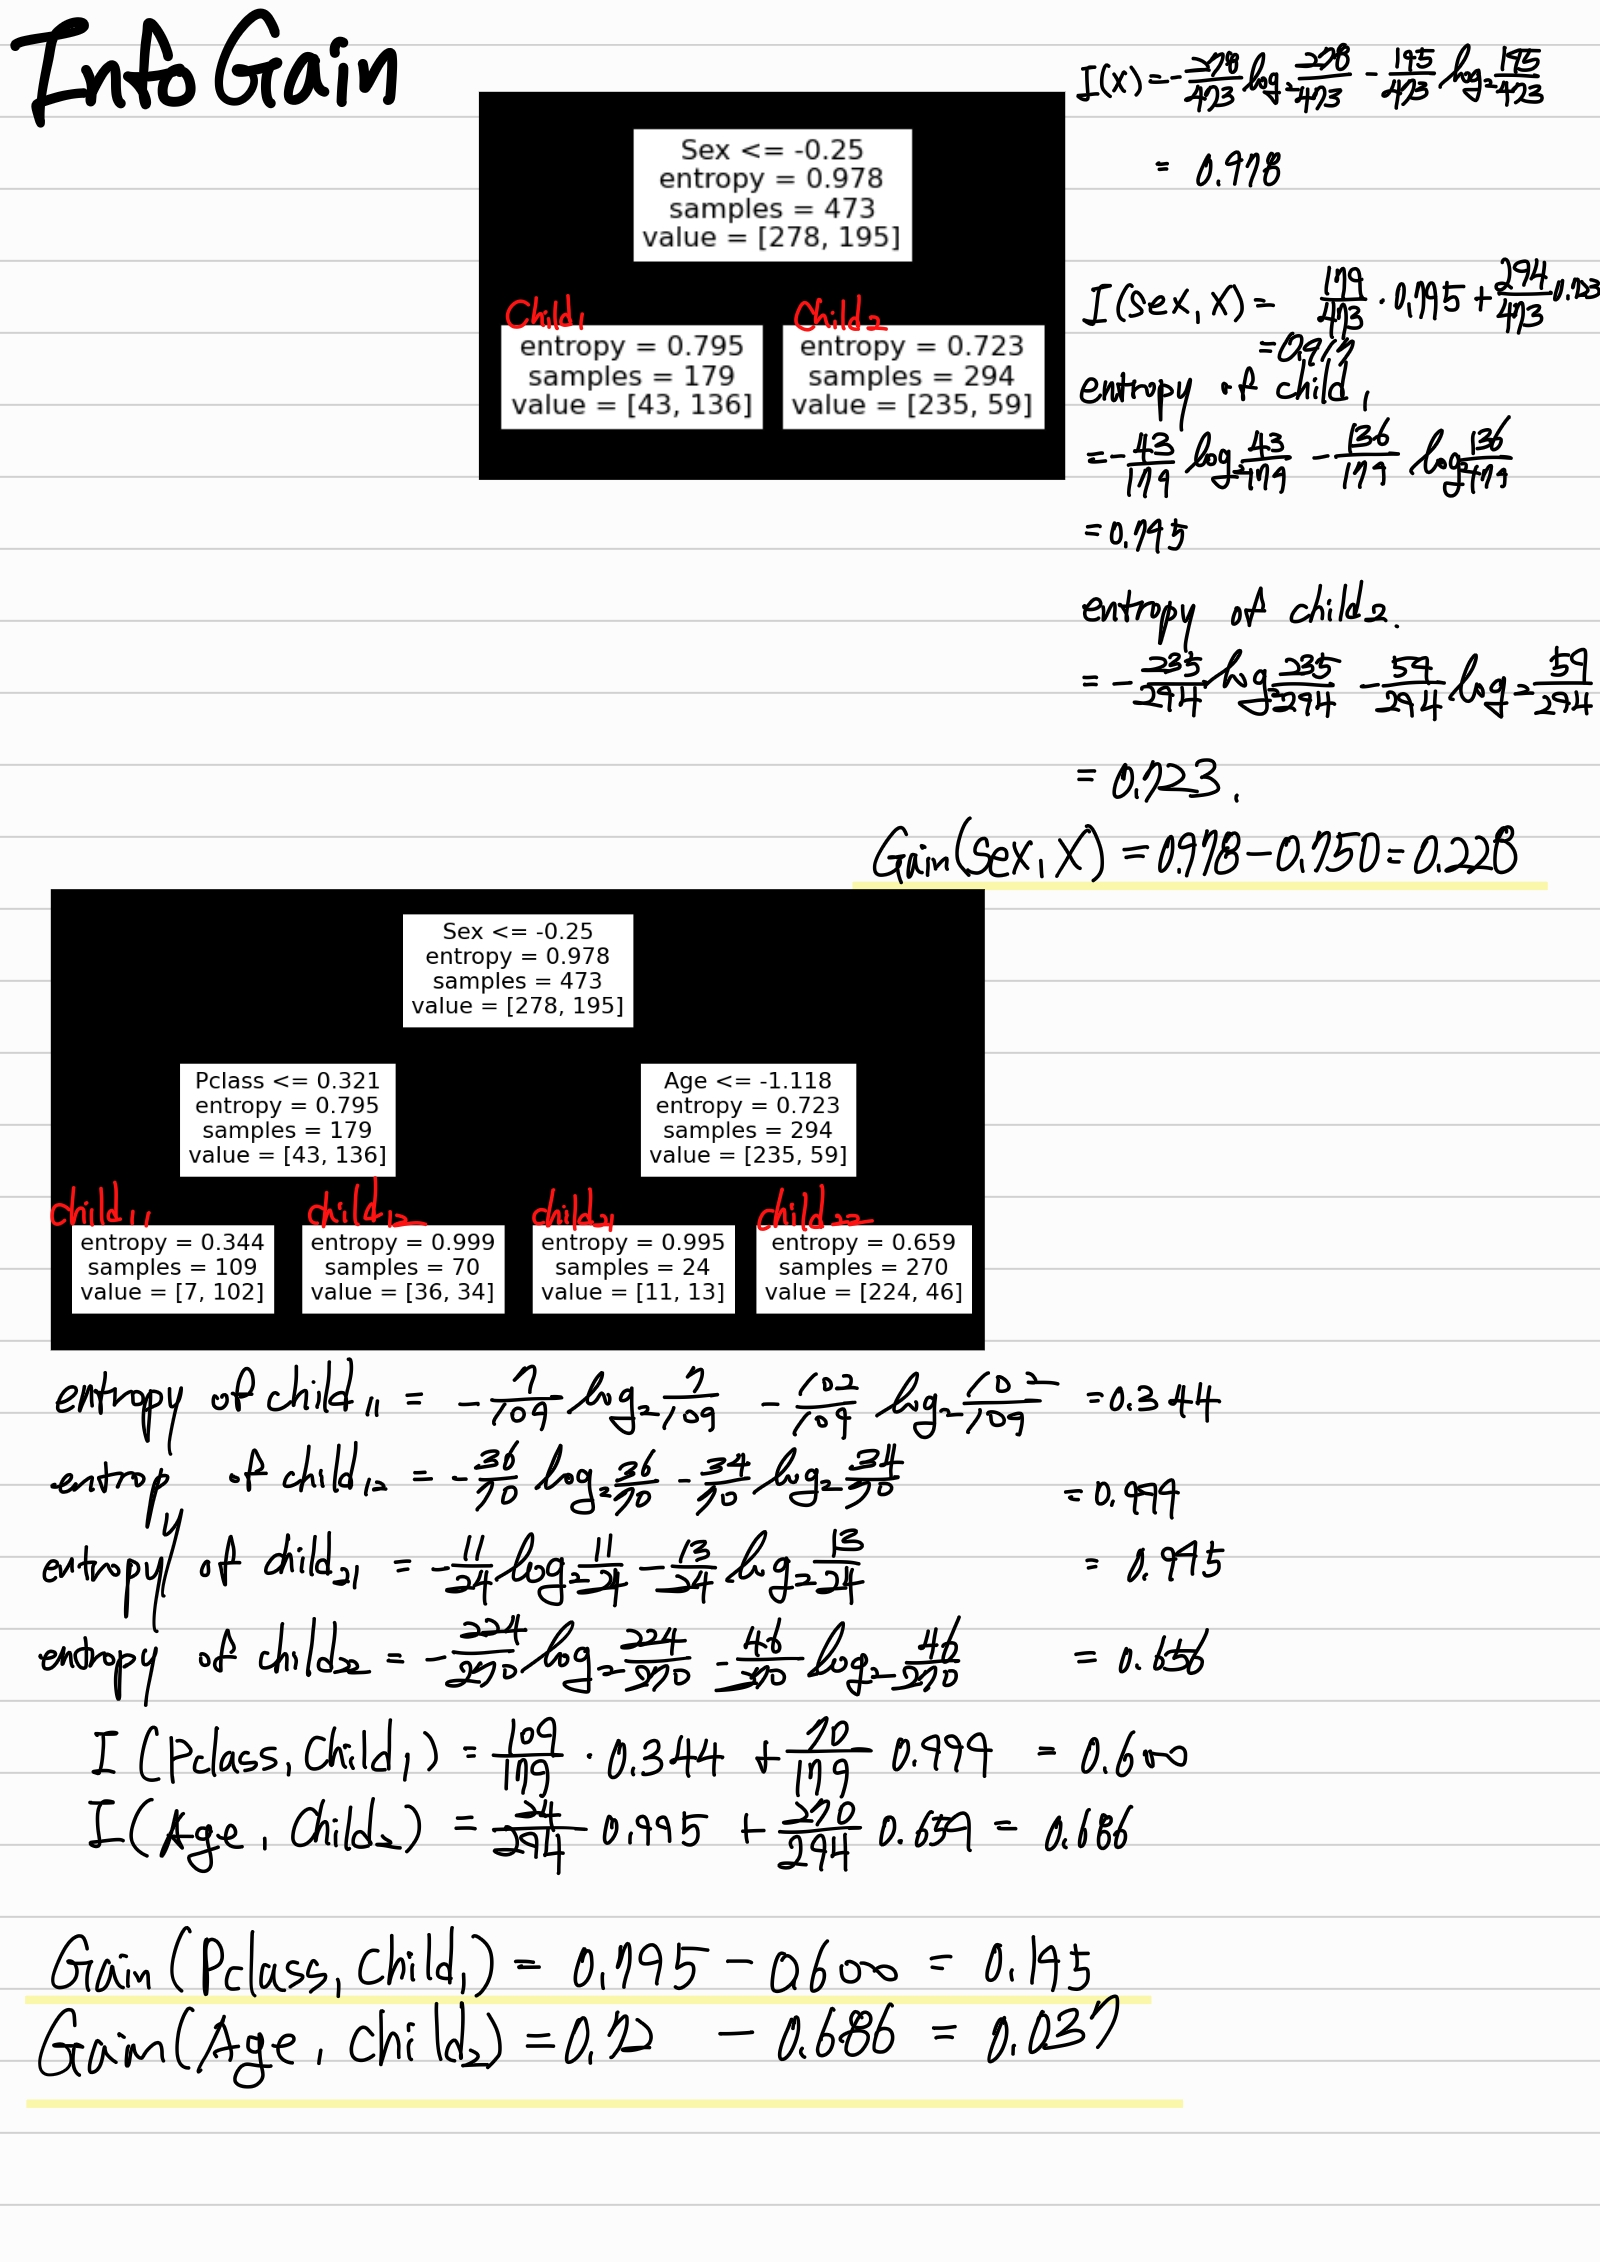 Info Gain
Sex <= -0.25
entropy = 0.978
samples = 473
value = [278, 195]
Child₁
entropy = 0.795
samples = 179
value = [43, 136]
Child₂
entropy = 0.723
samples = 294
value = [235, 59]
I(X) = -278/473 log₂ 278/473 - 195/473 log₂ 195/473
= 0.978
I(Sex, X) = 179/473 · 0.795 + 294/473 0.723
entropy of child₁
= -43/179 log₂ 43/179 - 136/179 log₂ 136/179
= 0.795
entropy of child₂.
= -235/294 log₂ 235/294 - 59/294 log₂ 59/294
= 0.723.
Gain(Sex, X) = 0.978 - 0.750 = 0.228
Sex <= -0.25
entropy = 0.978
samples = 473
value = [278, 195]
Pclass <= 0.321
entropy = 0.795
samples = 179
value = [43, 136]
Age <= -1.118
entropy = 0.723
samples = 294
value = [235, 59]
child₁₁
entropy = 0.344
samples = 109
value = [7, 102]
child₁₂
entropy = 0.999
samples = 70
value = [36, 34]
child₂₁
entropy = 0.995
samples = 24
value = [11, 13]
child₂₂
entropy = 0.659
samples = 270
value = [224, 46]
entropy of child₁₁ = -7/109 log₂ 7/109 - 102/109 log₂ 102/109 = 0.344
entropy of child₁₂ = -36/70 log₂ 36/70 - 34/70 log₂ 34/70 = 0.999
entropy of child₂₁ = -11/24 log₂ 11/24 - 13/24 log₂ 13/24 = 0.995
entropy of child₂₂ = -224/270 log₂ 224/270 - 46/270 log₂ 46/270 = 0.656
I(Pclass, Child₁) = 109/179 · 0.344 + 70/179 0.999 = 0.600
I(Age, Child₂) = 24/294 0.995 + 270/294 0.659 = 0.686
Gain(Pclass, Child₁) = 0.795 - 0.600 = 0.195
Gain(Age, Child₂) = 0.72 - 0.686 = 0.037